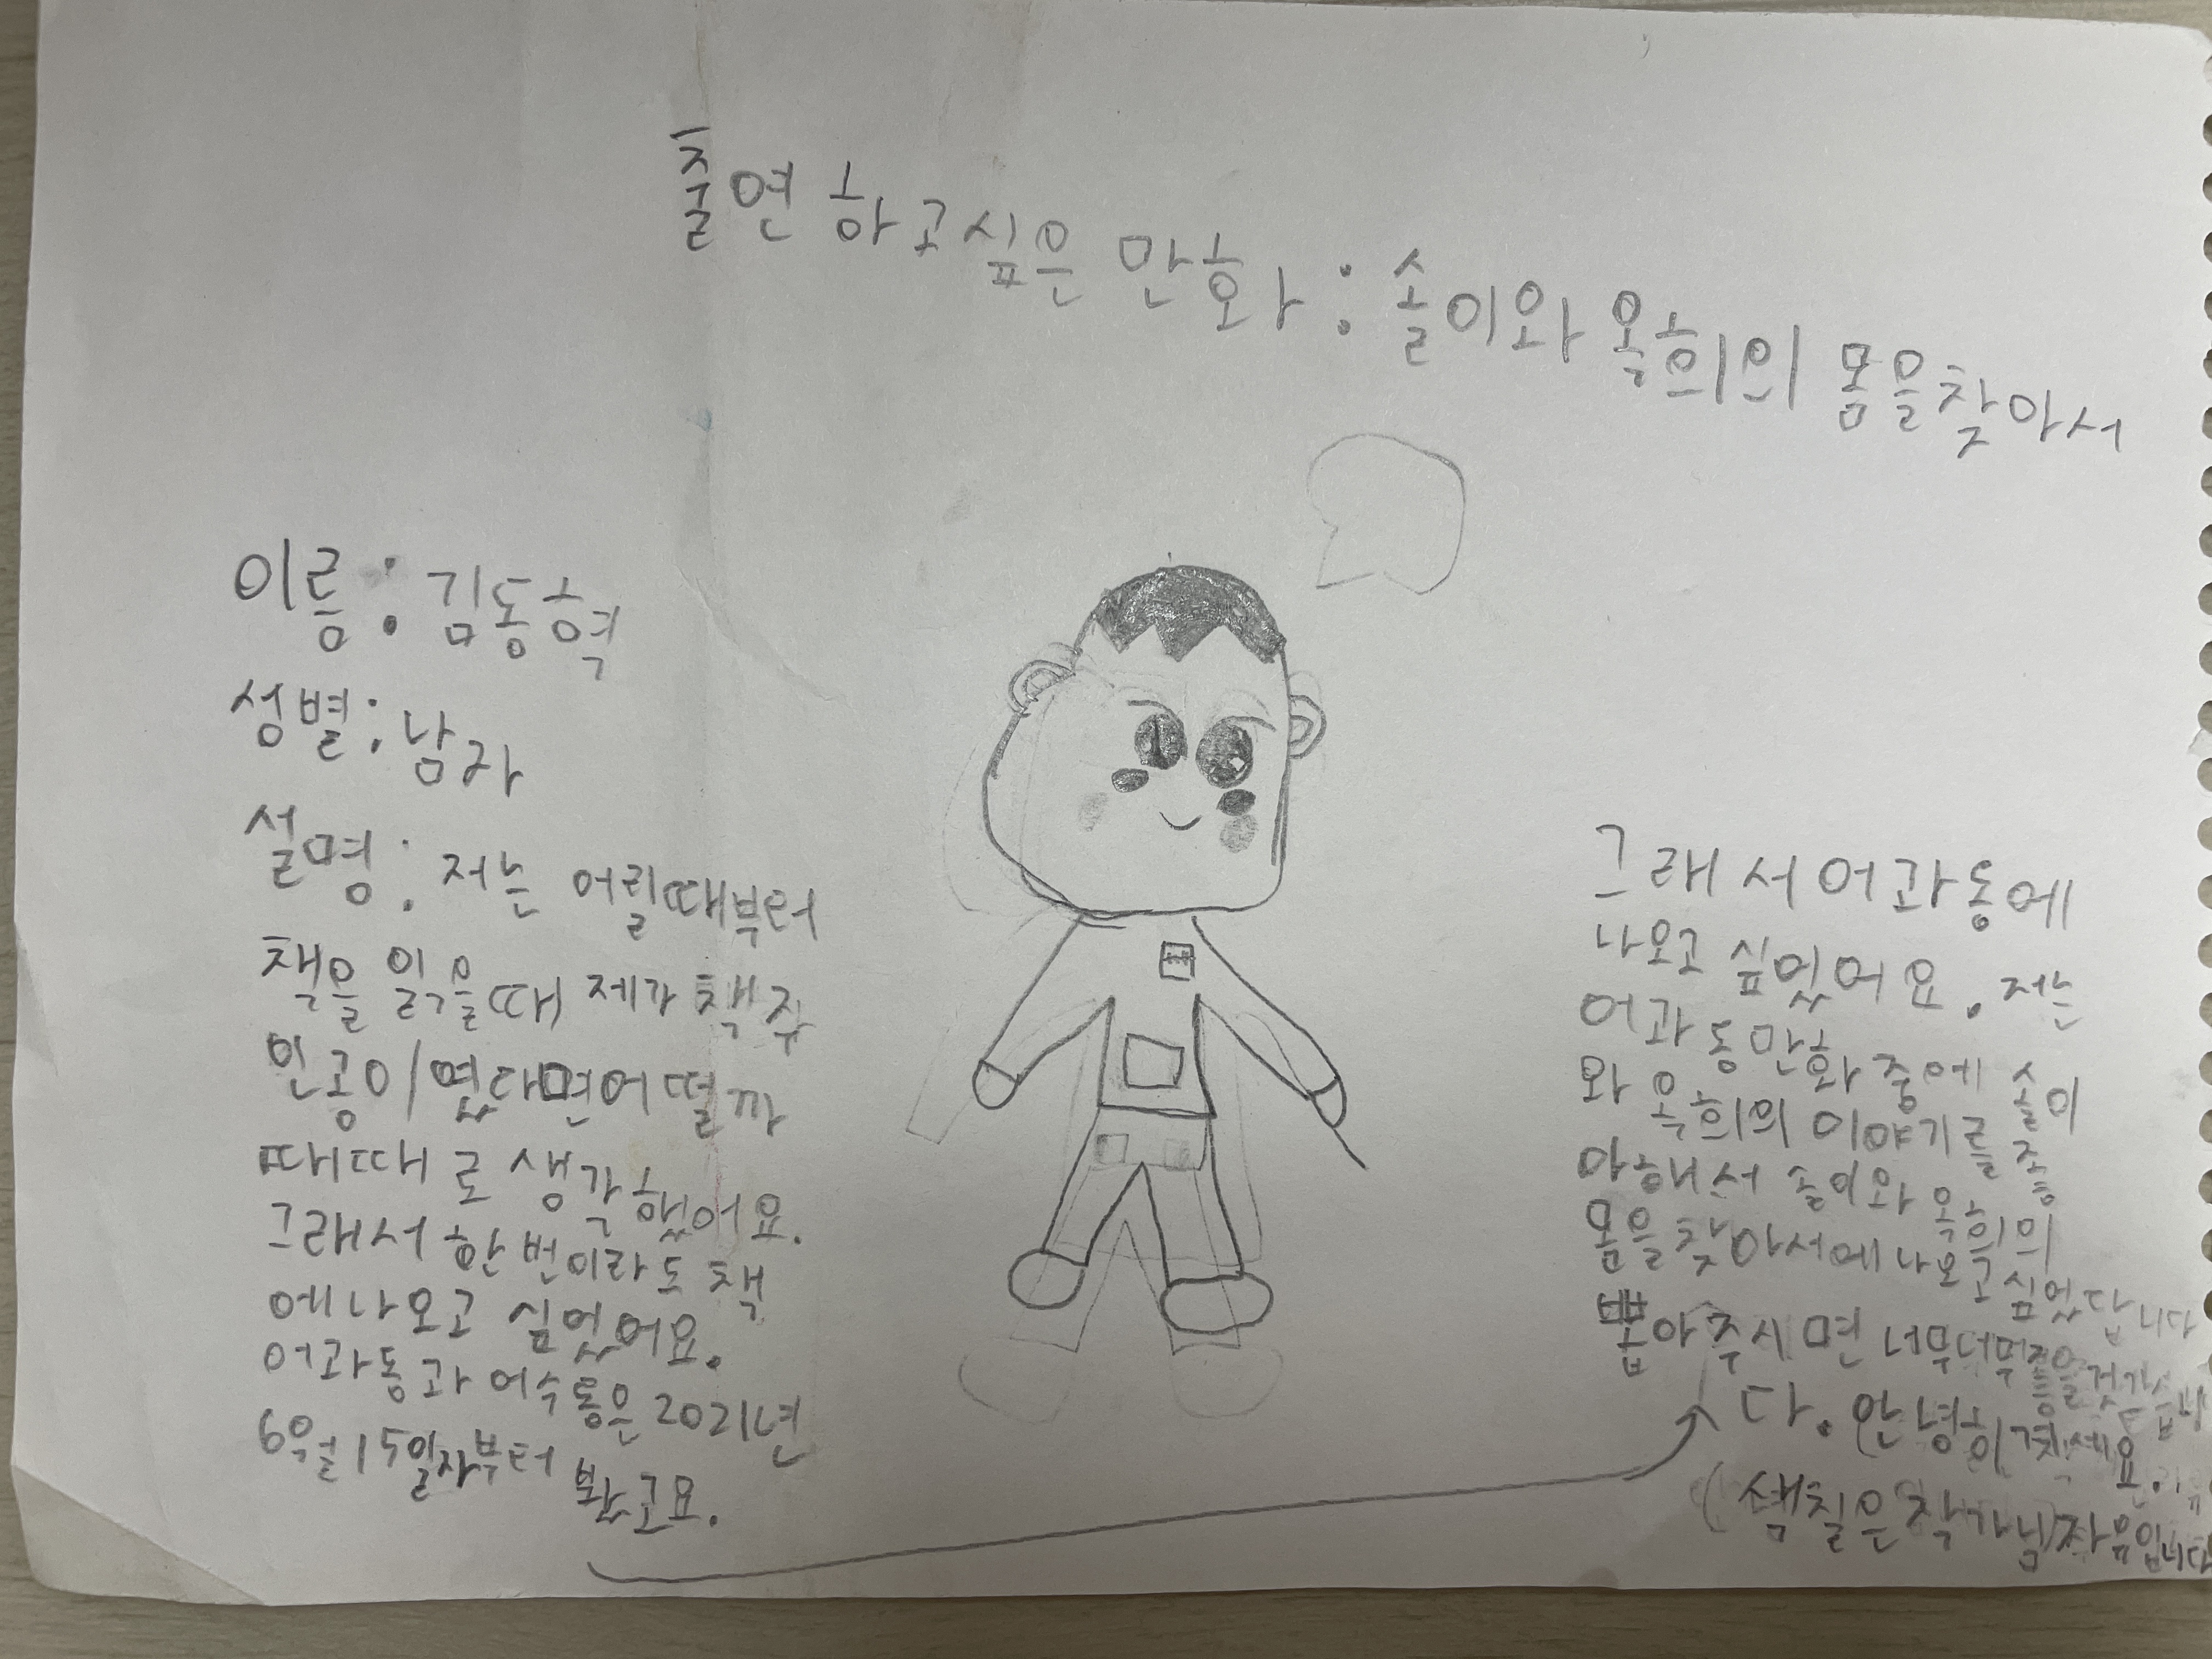 출연 하고싶은 만화 : 솔이와 옥희의 몸을찾아서
이름 : 김동혁
성별 : 남자
설명 : 저는 어릴때부터
책을 읽을때 제가 책 주
인공이였다면어떨까
때때로 생각했어요.
그래서 한번이라도 책
에나오고 싶었어요.
어과동과 어수동은 2021년
6월15일자부터 봤고요.
그래서어과동에
나오고 싶었어요. 저는
어과동만화중에 솔이
와 옥희의 이야기를 좋
아해서 솔이와 옥희의
몸을찾아서에나오고싶었답니다
뽑아주시면 너무너무좋을것같습니
다. 안녕히계세요.
(색칠은작가님자유입니다